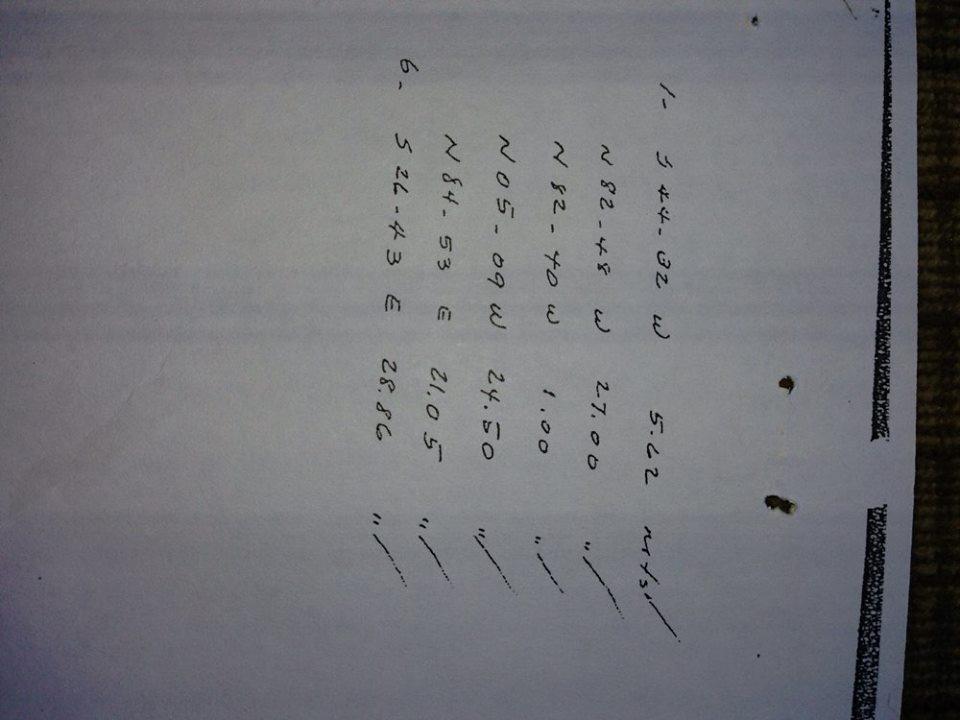 1- S 44-32 W 5.62 mts.
N 82-48 W 27.00 "
N 82-40 W 1.00 "
N 05-09 W 24.50 "
N 84-53 E 21.05 "
6- S 26-43 E 28.86 "